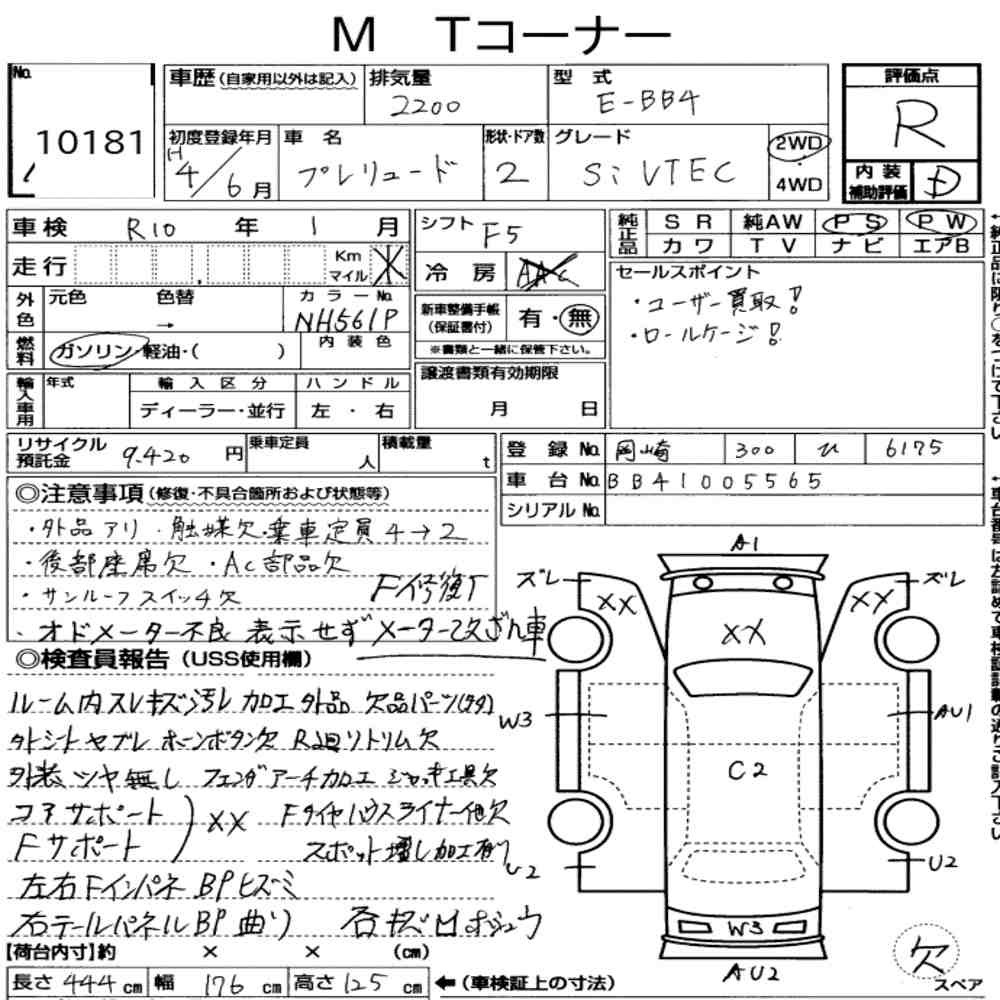 M Tコーナー
No. 10181
車歴(自家用以外は記入)
排気量 2200
型式 E-BB4
評価点 R
初度登録年月 H4/6月
車名 プレリュード
形状・ドア数 2
グレード Si VTEC
2WD・4WD
内装補助評価 D
車検 R10年 1月
シフト F5
純正品 SR 純AW PS PW
カワ TV ナビ エアB
走行 Km マイル
冷房 AAC
セールスポイント
・ユーザー買取!
・ロールケージ!
外色 元色 色替 → カラーNo. NH561P
新車整備手帳(保証書付) 有・無
※書類と一緒に保管下さい。
燃料 ガソリン・軽油・( ) 内装色
譲渡書類有効期限 月 日
輸入車用 年式 輸入区分 ハンドル
ディーラー・並行 左・右
リサイクル預託金 9.420円 乗車定員 人 積載量 t
登録No. 岡崎 300 ひ 6175
車台No. BB41005565
シリアルNo.
◎注意事項(修復・不具合箇所および状態等)
・外品アリ・触媒欠・乗車定員4→2
・後部座席欠・Ac部品欠
・サンルーフスイッチ欠 F修復T
・オドメーター不良 表示せず メーター改ざん車
◎検査員報告(USS使用欄)
ルーム内スレキズ汚レ 加工外品 欠品パーツ(多々)
外シートヤブレ ホーンボタン欠 R廻リトリム欠
外装ツヤ無し フェンダアーチ加工 ジャッキ工具欠
コアサポート
Fサポート ) XX Fタイヤハウスライナー他欠
スポット増し加工有り
左右Fインパネ BPヒズミ
右テールパネルBP曲リ
A1
ズレ ズレ
XX XX XX
W3 AU1
C2
U2 U2
W3
AU2
欠
スペア
【荷台内寸】約 × × (cm)
長さ 444cm 幅 176cm 高さ 125cm ←(車検証上の寸法)